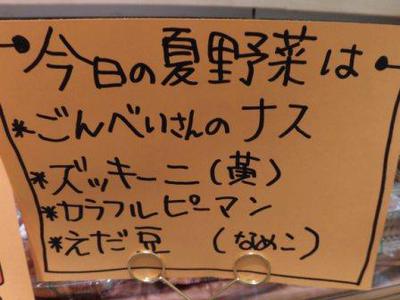 今日の夏野菜は
*ごんべいさんのナス
*ズッキーニ(黄)
*カラフルピーマン
*えだ豆 (なめこ)